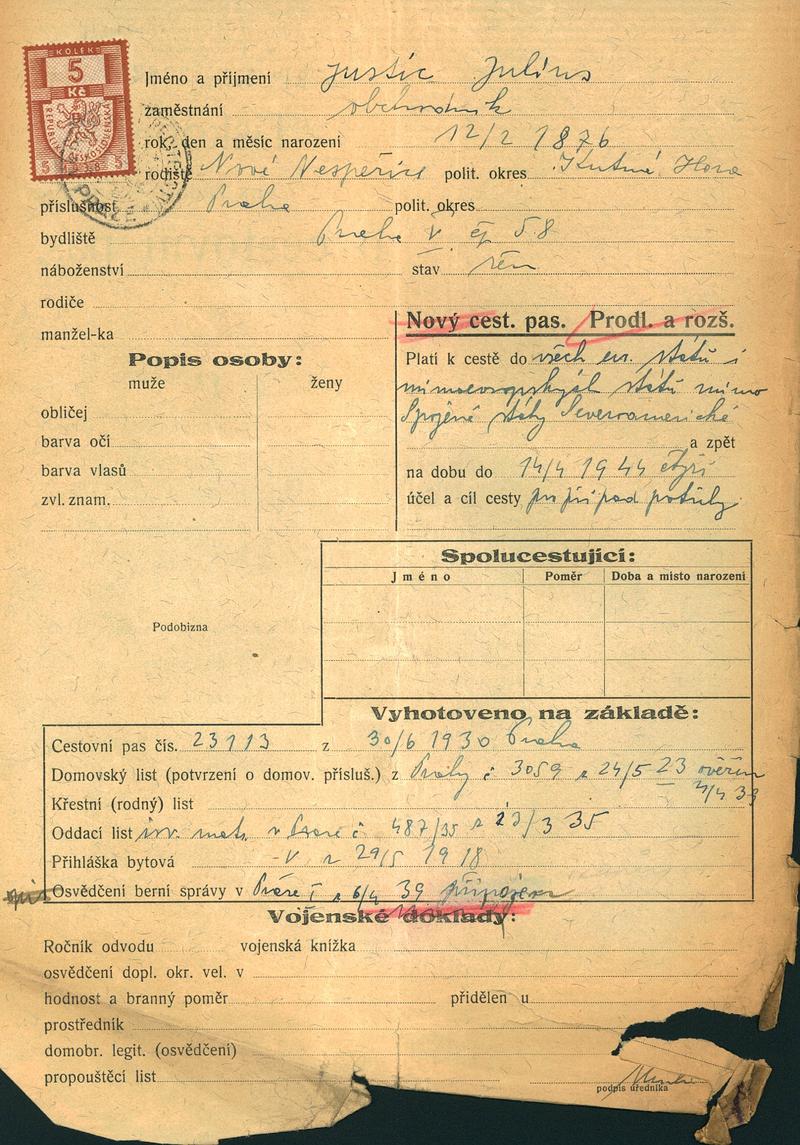 KOLEK
5
Kč
REPUBLIKA ČESKOSLOVENSKÁ
5 5
Jméno a příjmení Justic Julius
zaměstnání obchodník
rok, den a měsíc narození 12/2 1876
rodiště Nové Nespeřice polit. okres Kutná Hora
příslušnost Praha polit. okres
bydliště Praha V. čp 58
náboženství stav žen
rodiče
manžel-ka
Nový cest. pas. Prodl. a rozš.
Popis osoby:
muže ženy
obličej
barva očí
barva vlasů
zvl. znam.
Platí k cestě do všech ev. států i
mimoevropských států mimo
Spojené státy Severoamerické
a zpět
na dobu do 14/4 1944 čtyři
účel a cíl cesty pro případ potřeby
Spolucestující:
Jméno Poměr Doba a místo narození
Podobizna
Vyhotoveno na základě:
Cestovní pas čís. 23113 z 30/6 1930 Praha
Domovský list (potvrzení o domov. přísluš.) z Prahy č 3059 z 24/5 23 ověřen
4/4 39
Křestní (rodný) list
Oddací list izr. mat. v Praze č 487/35 z 23/3 35
Přihláška bytová V z 29/5 1918
Osvědčení berní správy v Praze I z 6/4 39 připojeno
Vojenské doklady:
Ročník odvodu vojenská knížka
osvědčení dopl. okr. vel. v
hodnost a branný poměr přidělen u
prostředník
domobr. legit. (osvědčení)
propouštěcí list
podpis úředníka